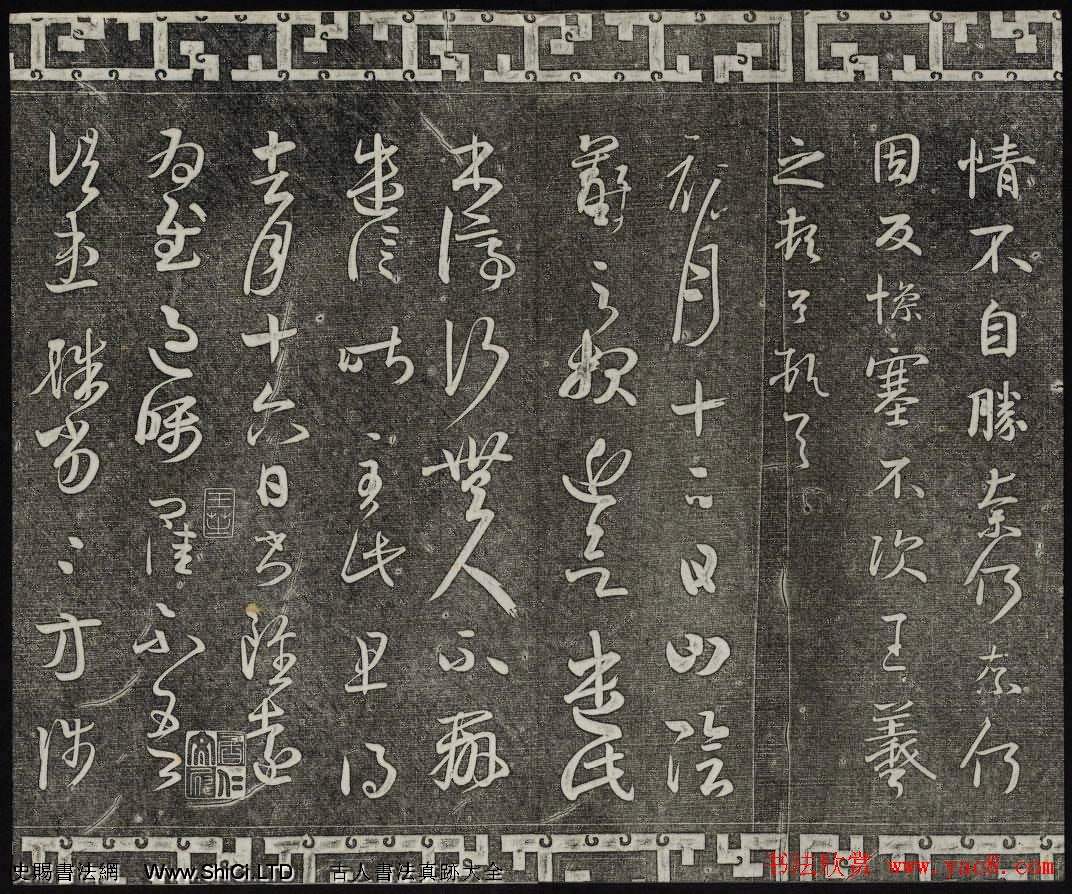 情不自勝奈何奈何
因反慘塞不次王羲
之頓首頓首
初月十二日山陰
羲之報近欲遣此
書停行無人不辦
遣信昨至此且得
去月十六日書雖遠
為慰過囑卿佳不吾
諸患殊劣〻方涉
史賜書法網 Www.ShiCi.LTD 古人書法真跡大全
书法欣赏 www.yac8.com